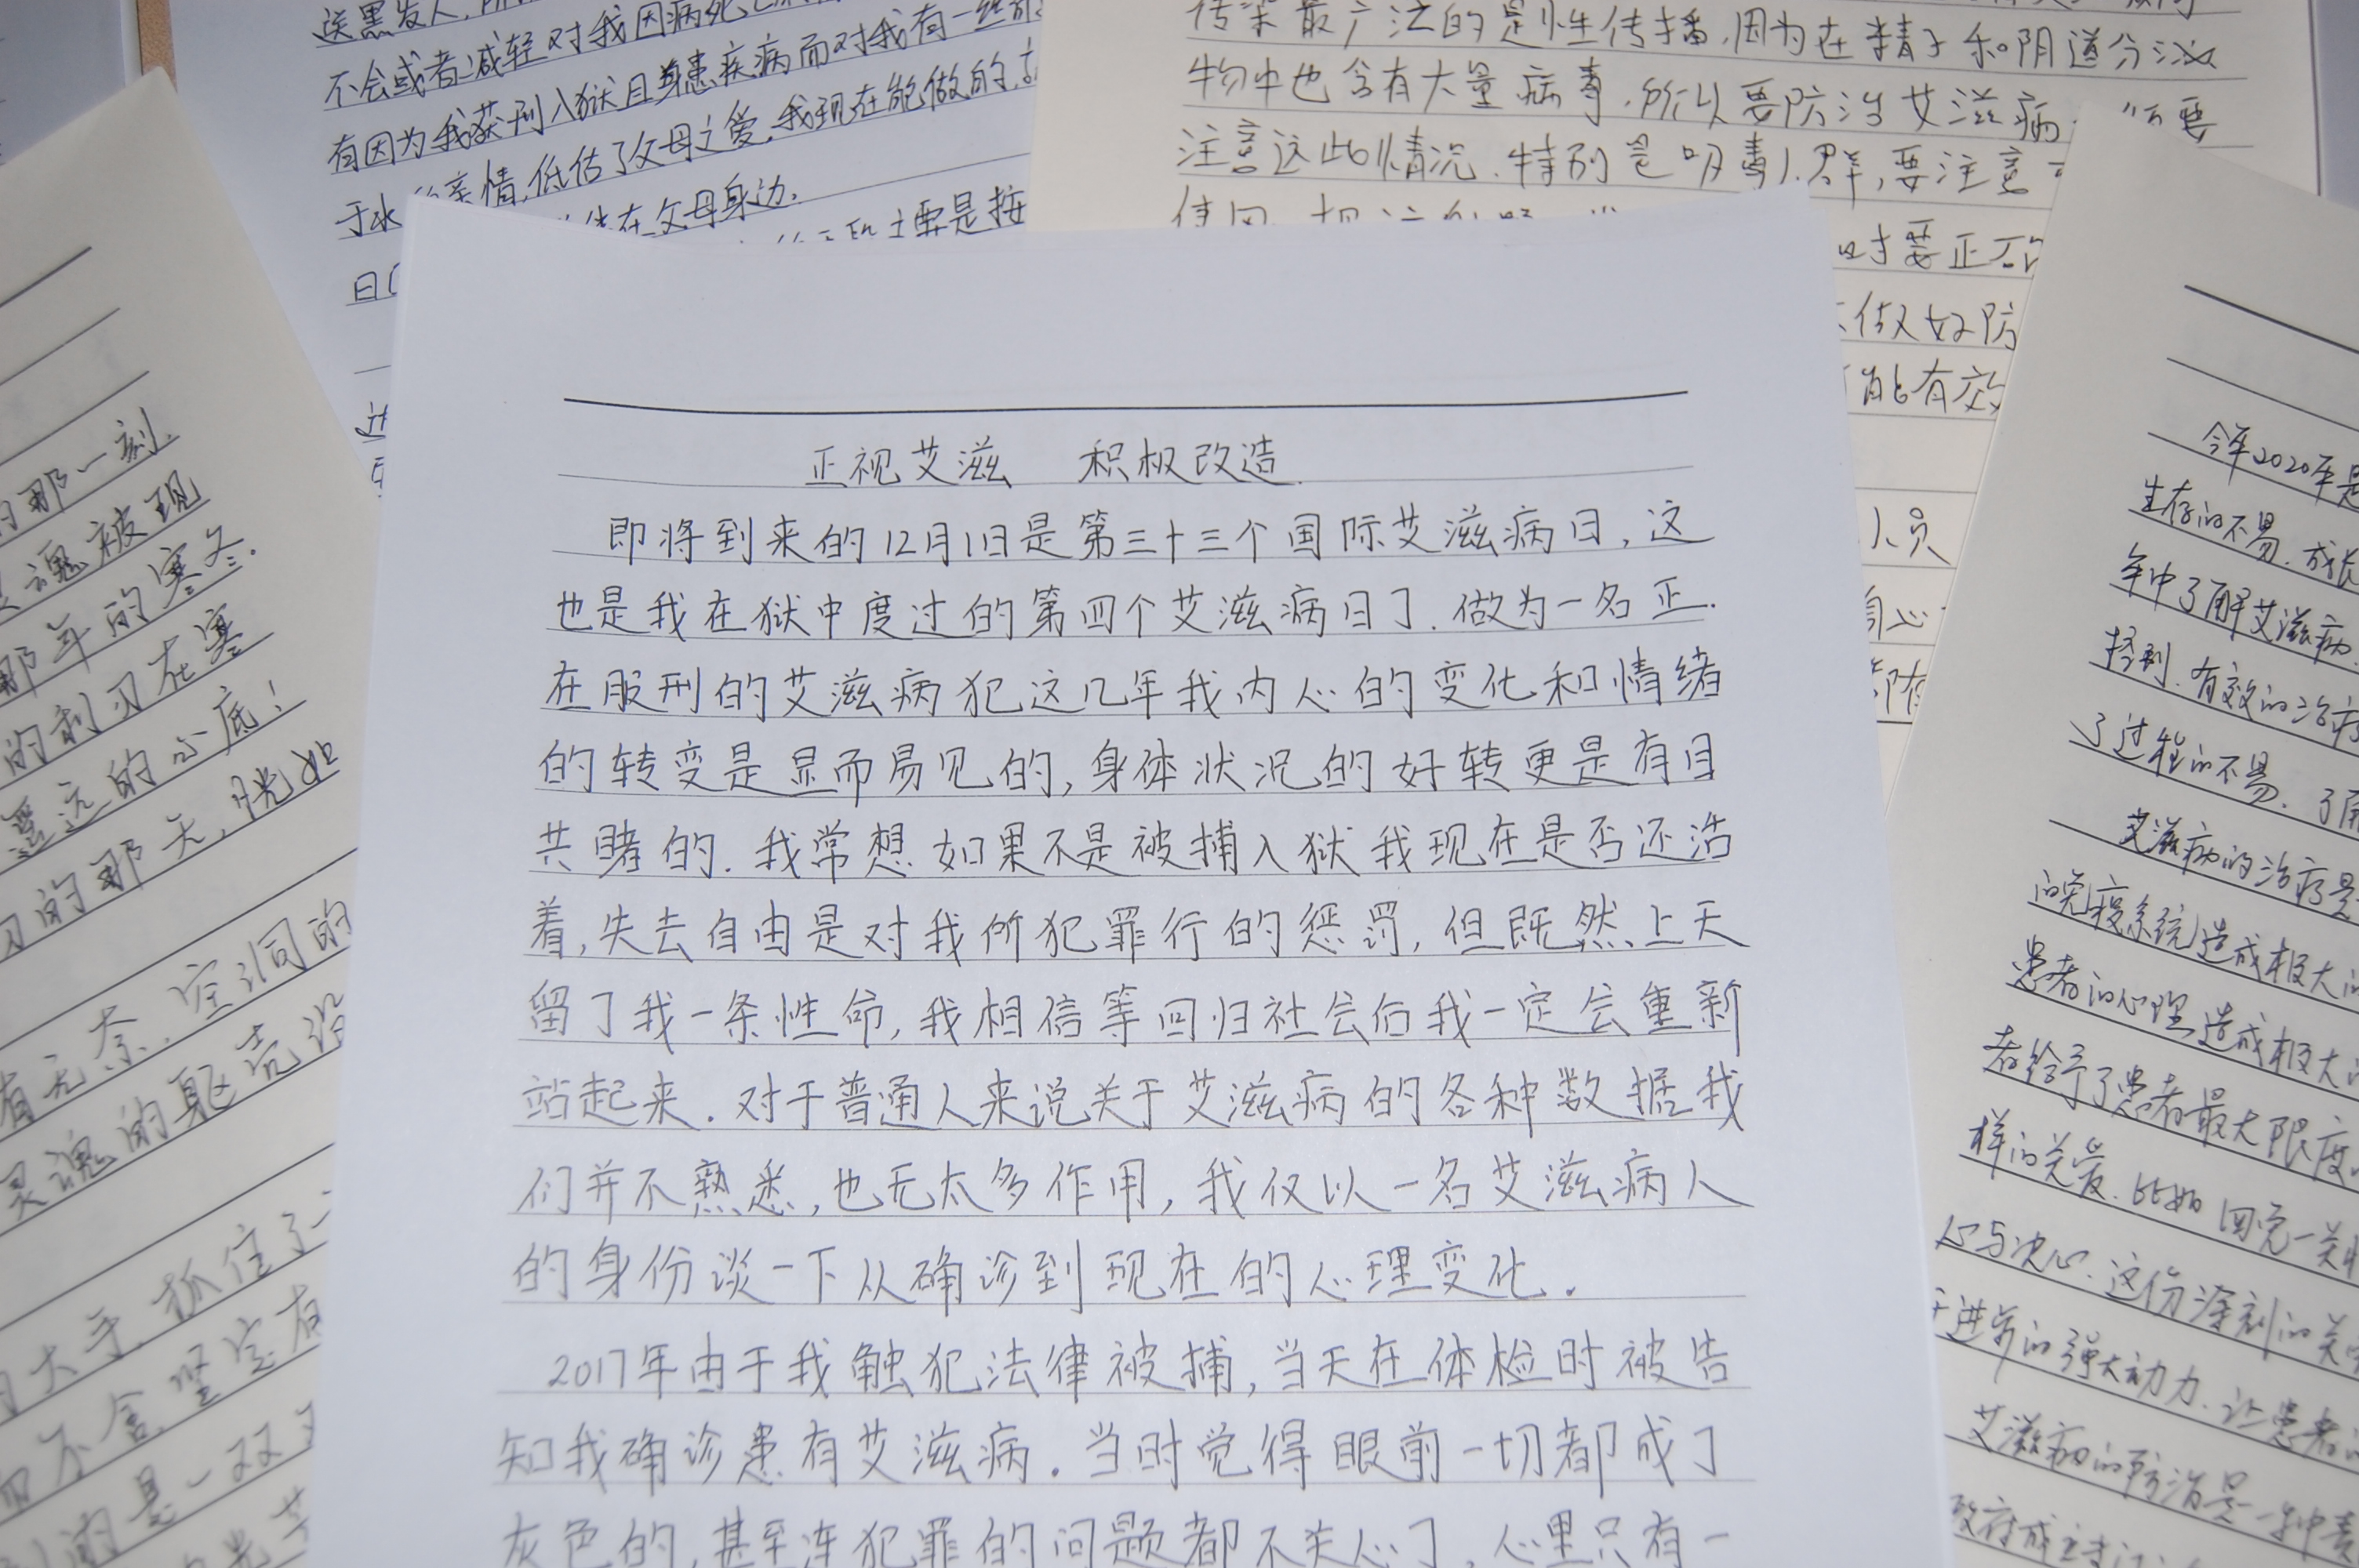 正视艾滋 积极改造.
即将到来的12月1日是第三十三个国际艾滋病日,这
也是我在狱中度过的第四个艾滋病日了.做为一名正.
在服刑的艾滋病犯这几年我内心的变化和情绪
的转变是显而易见的,身体状况的好转更是有目
共赌的.我常想如果不是被捕入狱我现在是否还活
着,失去自由是对我所犯罪行的惩罚,但既然上天
留了我一条性命,我相信等回归社会后我一定会重新
站起来.对于普通人来说关于艾滋病的各种数据我
们并不熟悉,也无太多作用,我仅以一名艾滋病人
的身份谈一下从确诊到现在的心理变化.
2017年由于我触犯法律被捕,当天在体检时被告
知我确诊患有艾滋病.当时觉得眼前一切都成了
灰色的,甚至连犯罪的问题都不关心了,心里只有一
送黑发人,
不会或者减轻对我因病死
有因为我获刑入狱且身患疾病而对我有一丝
亲情,低估了父母之爱,我现在能做的,
在父母身边.
主要是按
传染最广泛的是性传播,因为在精子和阴道分泌
物中也含有大量病毒,所以要防治艾滋病 要
注意这些情况.特别是吸毒人群,要注意
时要正
做好防
能有效
人员
的那一刻.
魂被现
那年的寒冬.
的利刃在寒
遥远的心底!
的那天,恍如
有无奈.空洞的
灵魂的躯壳
大手,抓住了
不舍.坚定有
的是一双
今年2020年是
生存的不易.成长
年中了解艾滋病.
控制.有效的治疗
了过程的不易.了解
艾滋病的治疗是
的免疫系统造成极大的
患者的心理造成极大的
者给予了患者最大限度
样的关爱.比如 四免一关
心与决心.这份深刻的关
进步的强大动力.让患者
艾滋病的防治是一种责
政府成立